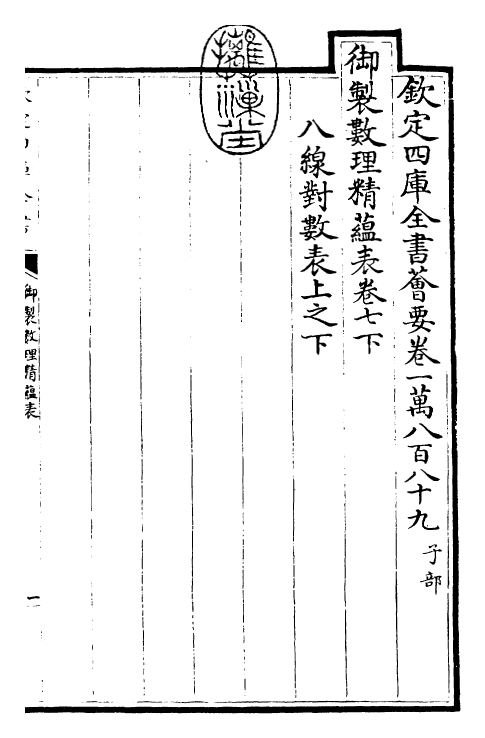 欽定四庫全書薈要卷一萬八百八十九 子部
御製數理精蘊表卷七下
八線對數表上之下
摛藻堂
欽定四庫全書
御製數理精蘊表
一